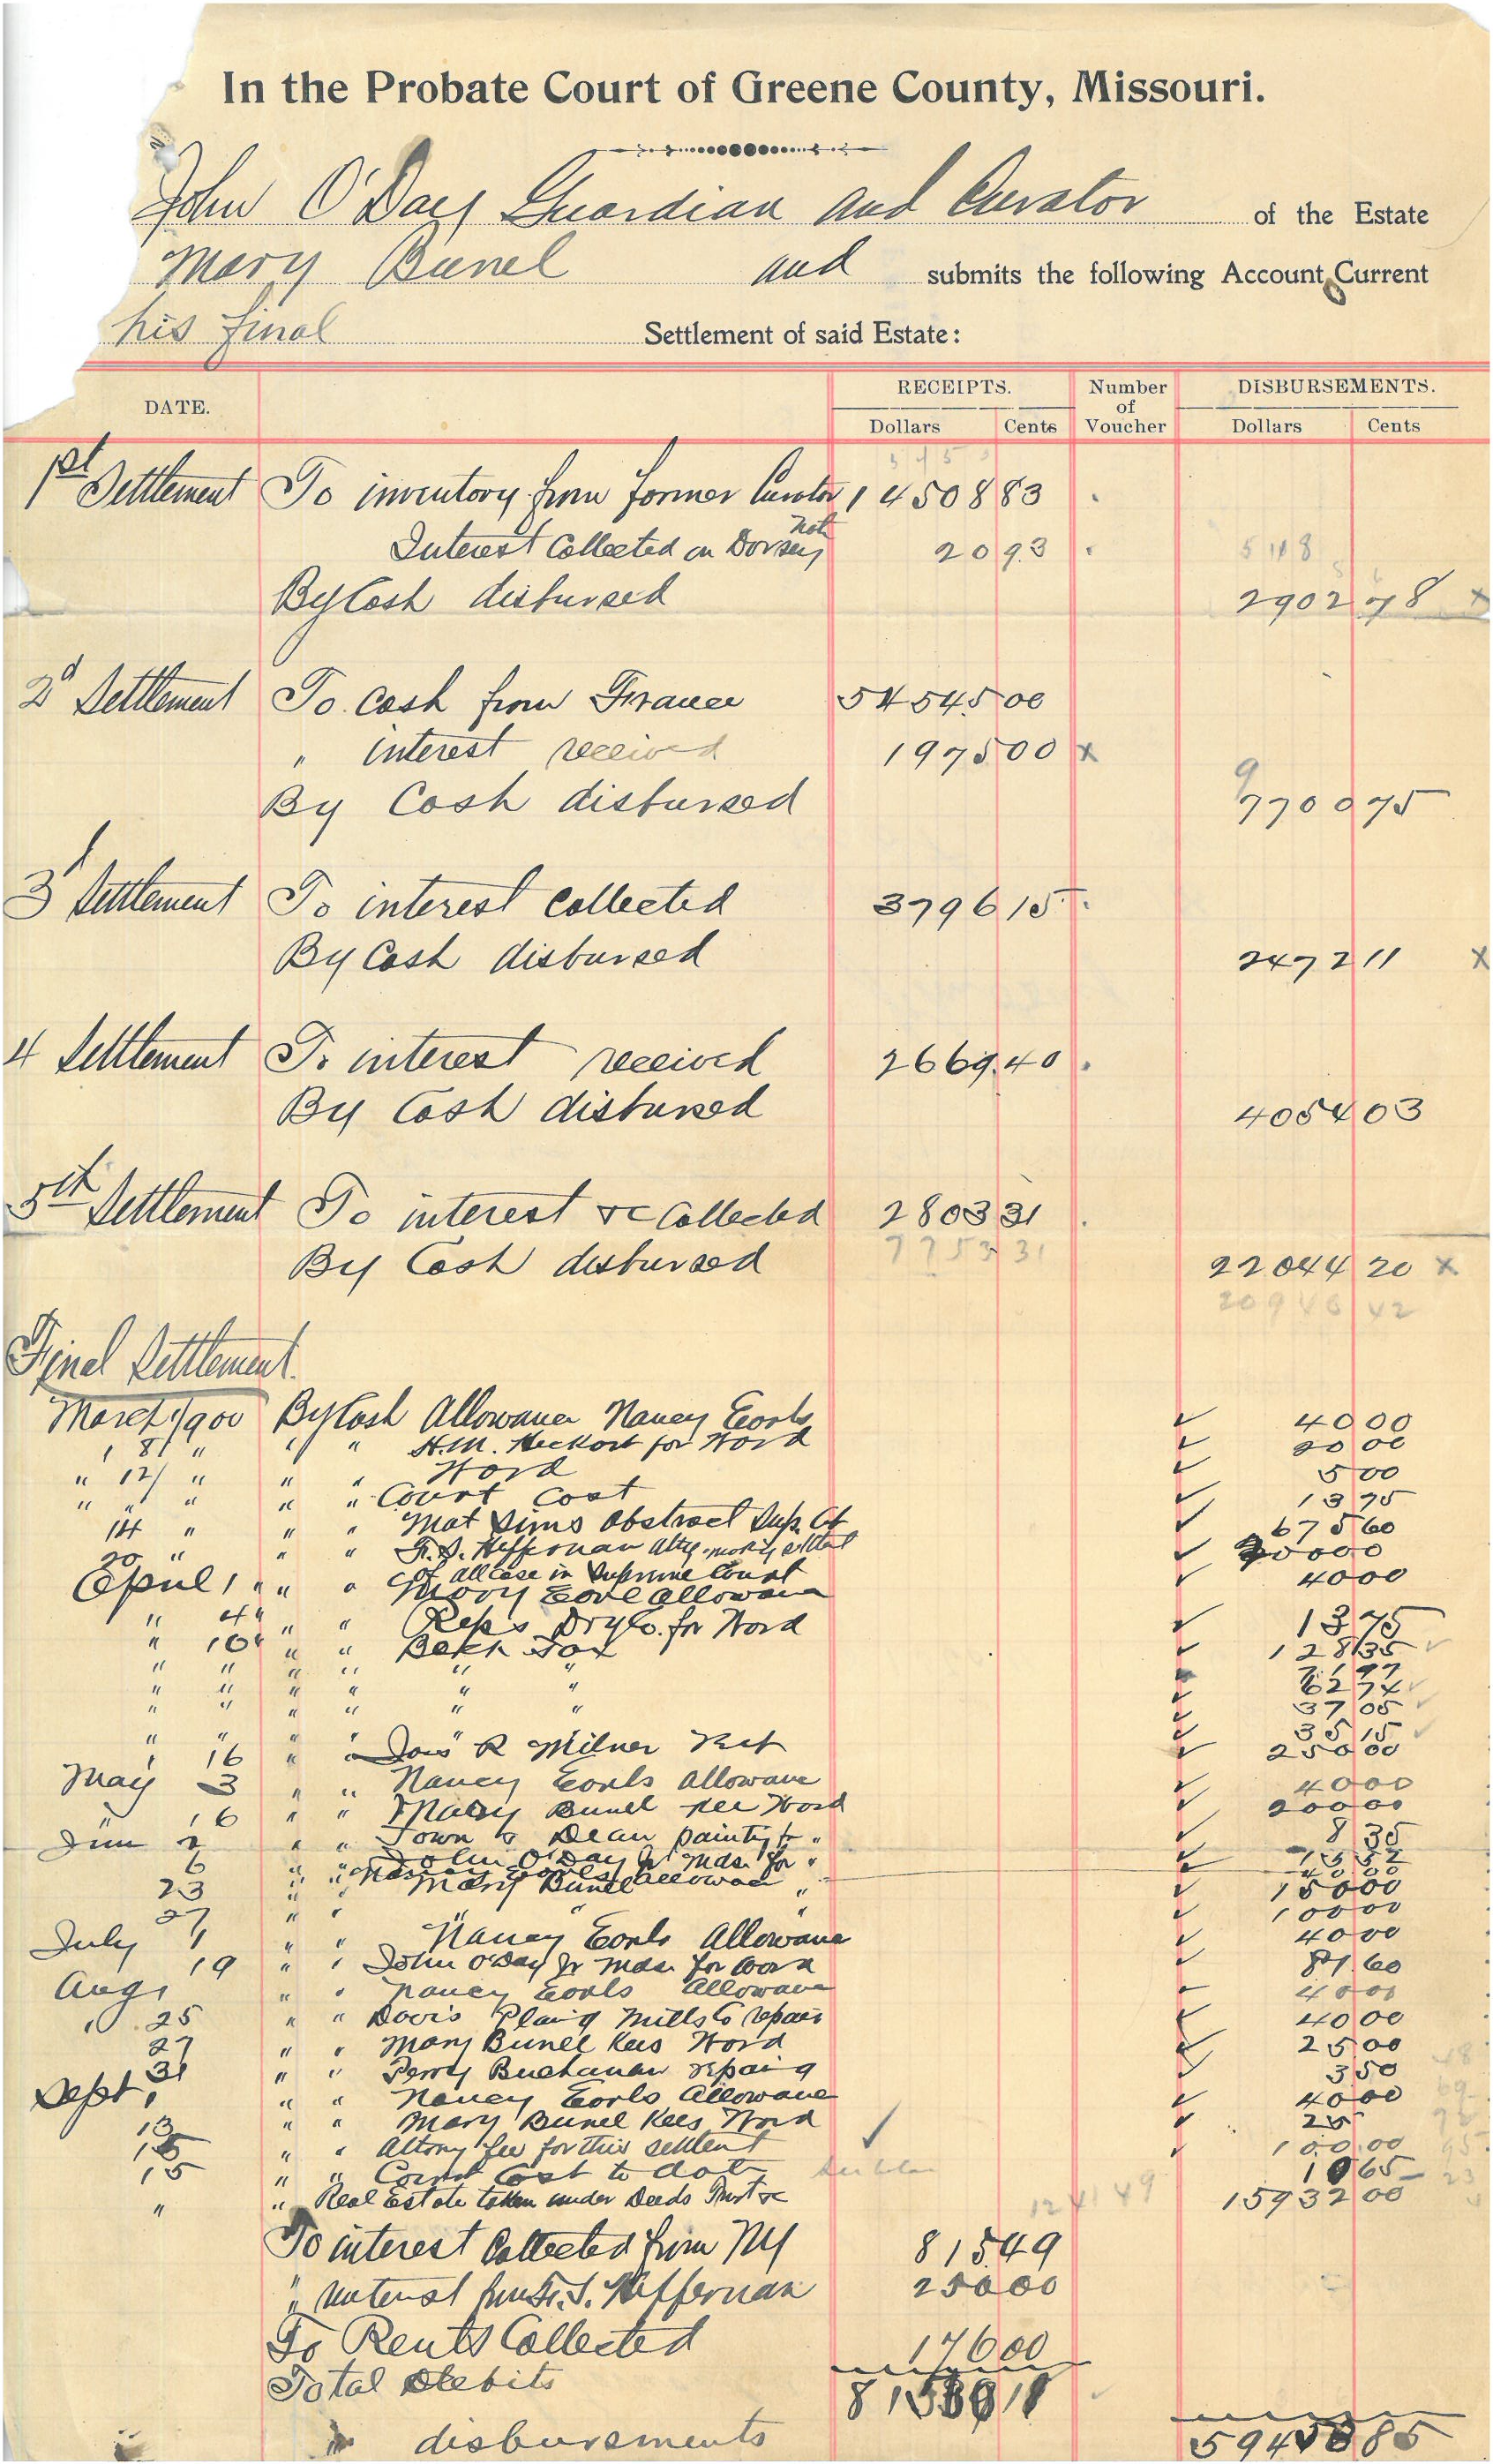 In the Probate Court of Greene County, Missouri.
John O'Day Guardian and Curator of the Estate
Mary Bunel and submits the following Account Current
his final Settlement of said Estate:
DATE. RECEIPTS. Number of Voucher DISBURSEMENTS.
Dollars Cents Dollars Cents
1st Settlement To inventory from former Curator 14508 83
Interest Collected on Dorsey note 20 93
By Cash disbursed 2902 78 x
2d Settlement To Cash from France 54545 00
" interest received 1975 00 x
By Cash disbursed 7700 75
3d Settlement To interest Collected 3796 15
By Cash disbursed 2472 11 x
4 Settlement To interest received 2669.40
By Cash disbursed 4054 03
5th Settlement To interest &c Collected 2803 31
7753 31
By Cash disbursed 22044 20 x
20946 42
Final Settlement.
March 1/900 By Cash Allowance Nancy Earls ✓ 40 00
" 8/ " " " H.M. Heckart for Ward ✓ 20 00
" 12/ " " " Ward ✓ 5 00
" " " " " Court Cost ✓ 13 75
14 " " " Mat Sims Abstract Sup. Ct ✓ 675 60
20 " " " F.S. Heffernan Atty ✓ 00 00
of all Case in Supreme Court
April 1 " " " Mary Earl Allowance ✓ 40 00
" 4 " " " Reps Dry Co. for Ward ✓ 13 75
" 10 " " " Back Tax ✓ 128 35 ✓
" " " " " " 71 97
" " " " " " ✓ 62 74 ✓
" " " " " " ✓ 37 05 ✓
" " " " ✓ 35 15 ✓
" 16 " " Jas R Milner ✓ 250 00
May 3 " " Nancy Earls Allowance ✓ 40 00
" 16 " " Mary Bunel Ward ✓ 200 00
June 2 " " Town & Dean painting " ✓ 8 35
6 " " John O'Day Jr Mds. for " ✓
" " Nancy Earls Allowance 40 00
23 " " Mary Bunel " ✓ 150 00
27 " " " " " ✓ 100 00
July 1 " " Nancy Earls Allowance ✓ 40 00
19 " " John O'Day Jr Mds. for Ward ✓ 81.60
Aug 1 " " Nancy Earls Allowance 40 00
" 25 " " Davis Plaing Mills Co repairs ✓ 40 00
27 " " Mary Bunel Kees Ward ✓ 25 00
31 " " Perry Buchanan repairing ✓ 3 50
Sept 1 " " Nancy Earls Allowance ✓ 40 00
13 " " Mary Bunel Kees Ward ✓ 25
15 " " Attorny fee for this settlent ✓ 100.00
15 " " Court Cost to date 10 65
" " Real Estate taken under Deeds Trust &c 15932 00
12 41 49
To interest Collected from NY 815 49
" interest from F.S. Heffernan 250 00
To Rents Collected 176 00
Total Debits
disbursements